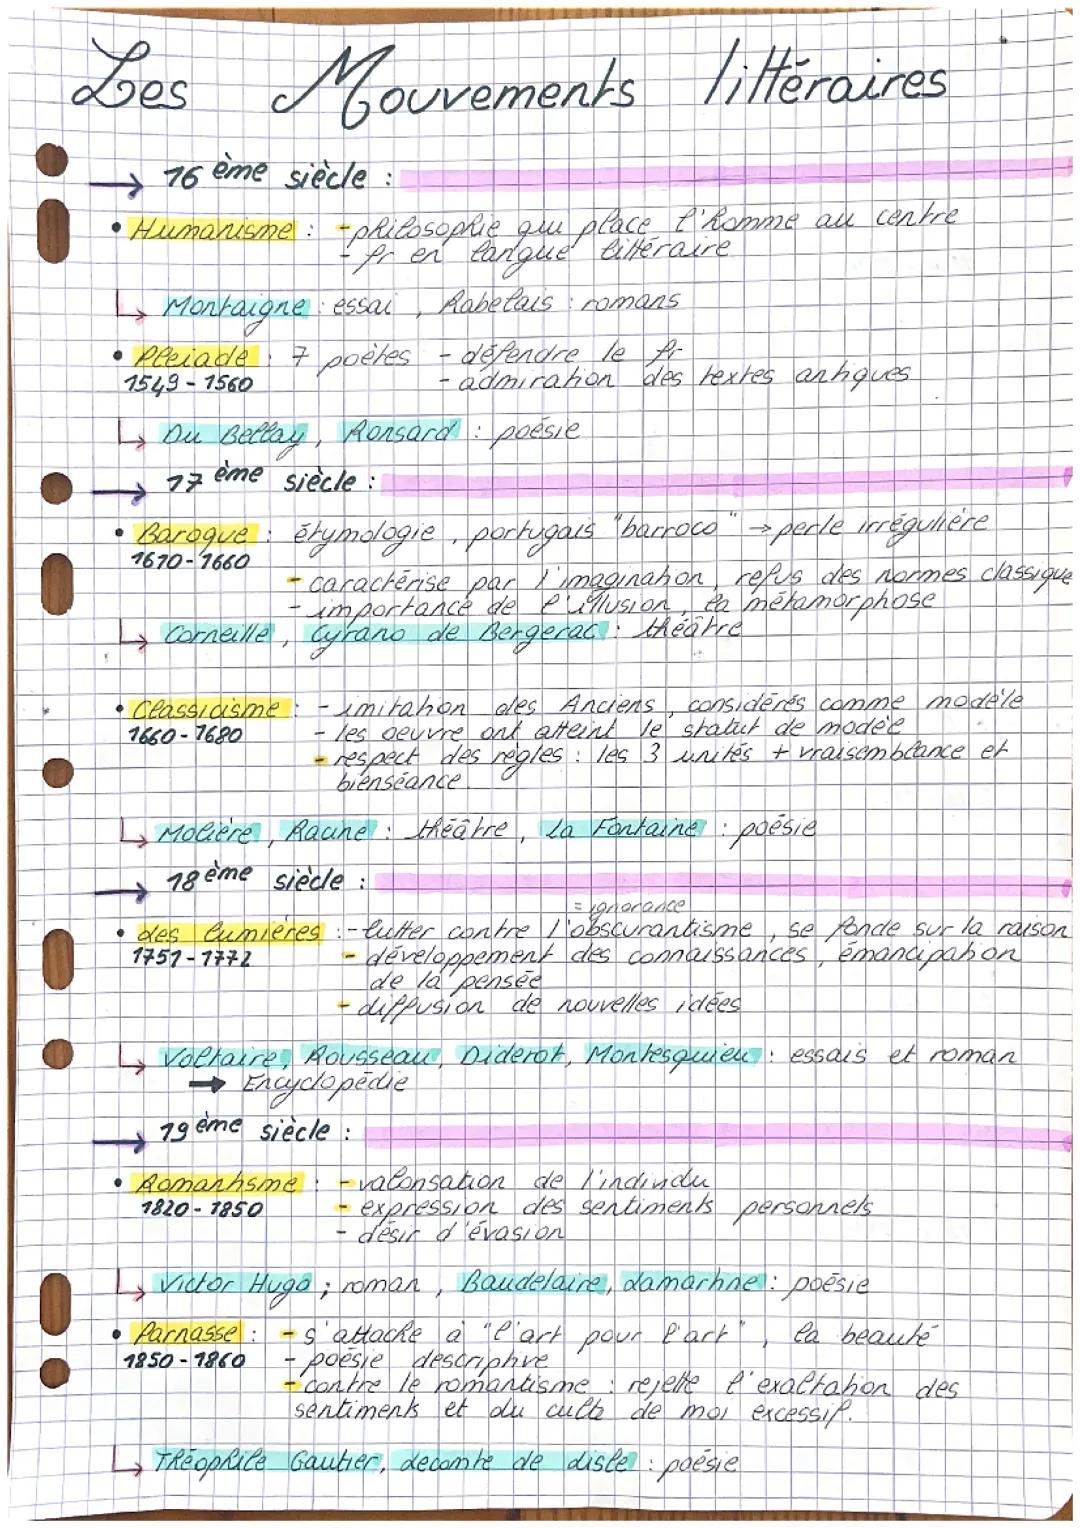 Les Mouvements littéraires
→ 16 ème siècle :
• Humanisme : - philosophie qui place l'homme au centre
- fr en langue littéraire
↳ Montaigne : essai , Rabelais : romans
• Pléiade : 7 poètes - défendre le fr
1549 - 1560 - admiration des textes antiques
↳ Du Bellay, Ronsard : poésie
→ 17 ème siècle :
• Baroque : étymologie, portugais "barroco" → perle irrégulière
1610 - 1660
- caractérise par l'imagination, refus des normes classique
- importance de l'illusion, la métamorphose
↳ Corneille, Cyrano de Bergerac : théâtre
• Classicisme : - imitation des Anciens, considérés comme modèle
1660 - 1680 - les oeuvre ont atteint le statut de modèle
- respect des règles : les 3 unités + vraisemblance et
bienséance
↳ Molière, Racine : théâtre, La Fontaine : poésie
→ 18 ème siècle :
= ignorance
• Les lumières : - lutter contre l'obscurantisme, se fonde sur la raison
1751 - 1772 - développement des connaissances, émancipation
de la pensée
- diffusion de nouvelles idées
↳ Voltaire, Rousseau, Diderot, Montesquieu : essais et roman
→ Encyclopédie
→ 19 ème siècle :
• Romantisme : - valorisation de l'individu
1820 - 1850 - expression des sentiments personnels
- désir d'évasion
↳ Victor Hugo ; roman, Baudelaire, Lamartine : poésie
• Parnasse : - s'attache à "l'art pour l'art", la beauté
1850 - 1860 - poésie descriptive
- contre le romantisme : rejette l'exaltation des
sentiments et du culte de moi excessif.
↳ Théophile Gautier, Lecomte de Lisle : poésie